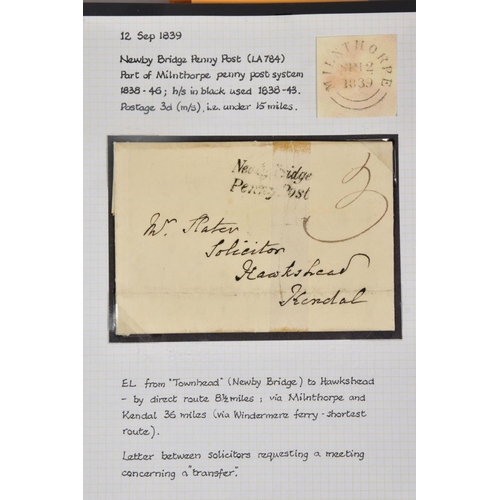 12 Sep 1839
Newby Bridge Penny Post (LA784)
Part of Milnthorpe penny post system
1838-46; h/s in black used 1838-43.
Postage 3d (m/s), i.e. under 15 miles.
MILNTHORPE
SP12
1839
Newby Bridge
Penny Post
3
Mr. Slater
Solicitor
Hawkshead
Kendal
EL from "Townhead" (Newby Bridge) to Hawkshead
- by direct route 8½ miles; via Milnthorpe and
Kendal 36 miles (via Windermere ferry - shortest
route).
Letter between solicitors requesting a meeting
concerning a "transfer".